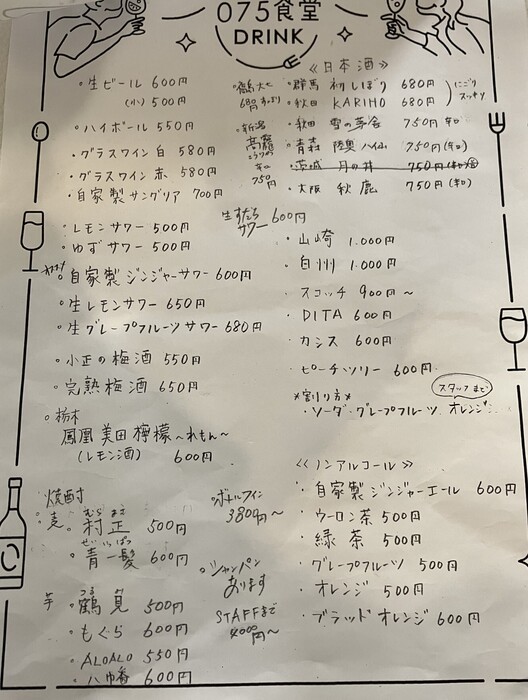 075食堂
DRINK
・生ビール 600円
(小) 500円
・ハイボール 550円
・グラスワイン 白 580円
・グラスワイン 赤 580円
・自家製サングリア 700円
・レモンサワー 500円
・ゆずサワー 500円
・自家製ジンジャーサワー 600円
・生レモンサワー 650円
・生グレープフルーツサワー 680円
・小正の梅酒 550円
・完熟梅酒 650円
・栃木
鳳凰美田 檸檬 〜れもん〜
(レモン酒) 600円
焼酎
麦
むらまさ
・村正 500円
・青一髪 600円
芋
つるみ
・鶴見 500円
・もぐら 600円
・ALOALO 550円
・八幡 600円
680円
・新潟
辛口
750円
生すだち
サワー 600円
・ボトルワイン
3800円〜
・シャンパン
あります
STAFFまで
4000円〜
≪日本酒≫
・群馬 初しぼり 680円
・秋田 KARIHO 680円
にごり
スッキリ
・秋田 雪の茅舎 750円 辛口
・青森 陸奥八仙 750円 (辛口)
・茨城 月の井 750円
・大阪 秋鹿 750円 (辛口)
・山崎 1.000円
・白州 1.000円
・スコッチ 900円〜
・DITA 600円
・カシス 600円
・ピーチツリー 600円
*割り方*
スタッフまで
・ソーダ・グレープフルーツ・オレンジ
≪ノンアルコール≫
・自家製ジンジャーエール 600円
・ウーロン茶 500円
・緑茶 500円
・グレープフルーツ 500円
・オレンジ 500円
・ブラッドオレンジ 600円